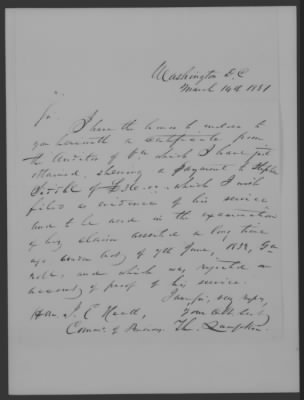 Washington D.C
March 14th 1851
Sir.
I have the honor to enclose to
you herewith a certificate from
the Auditor of Va which I have just
obtained, showing a payment to Stephen
which I wish
filed as evidence of his service
and to be used in the examination
of his claim asserted a long time
ago under act of 7th June, 1832,
and which was rejected on
account of proof of his service.
I am Sir, very respy,
Hon. J. E Heath, Your obt. Svt
Commr. of Pensions.